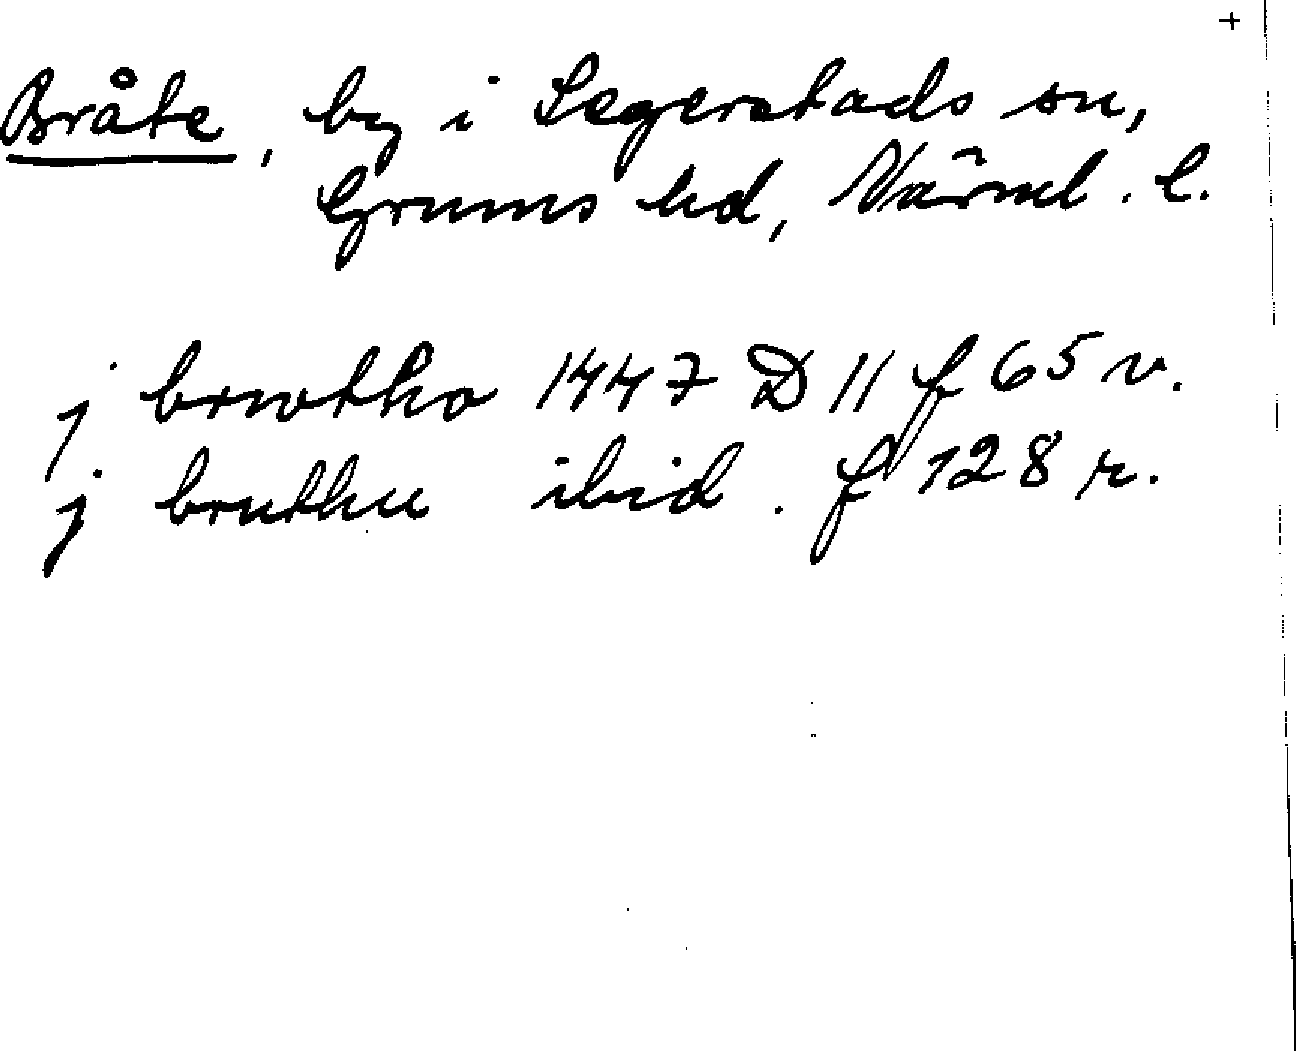 +
Bråte, by i Segerstads sn,
Grums hd, Värml. l.
j brwtho 1447 D 11 f 65 v.
j bruthu ibid. f 128 r.